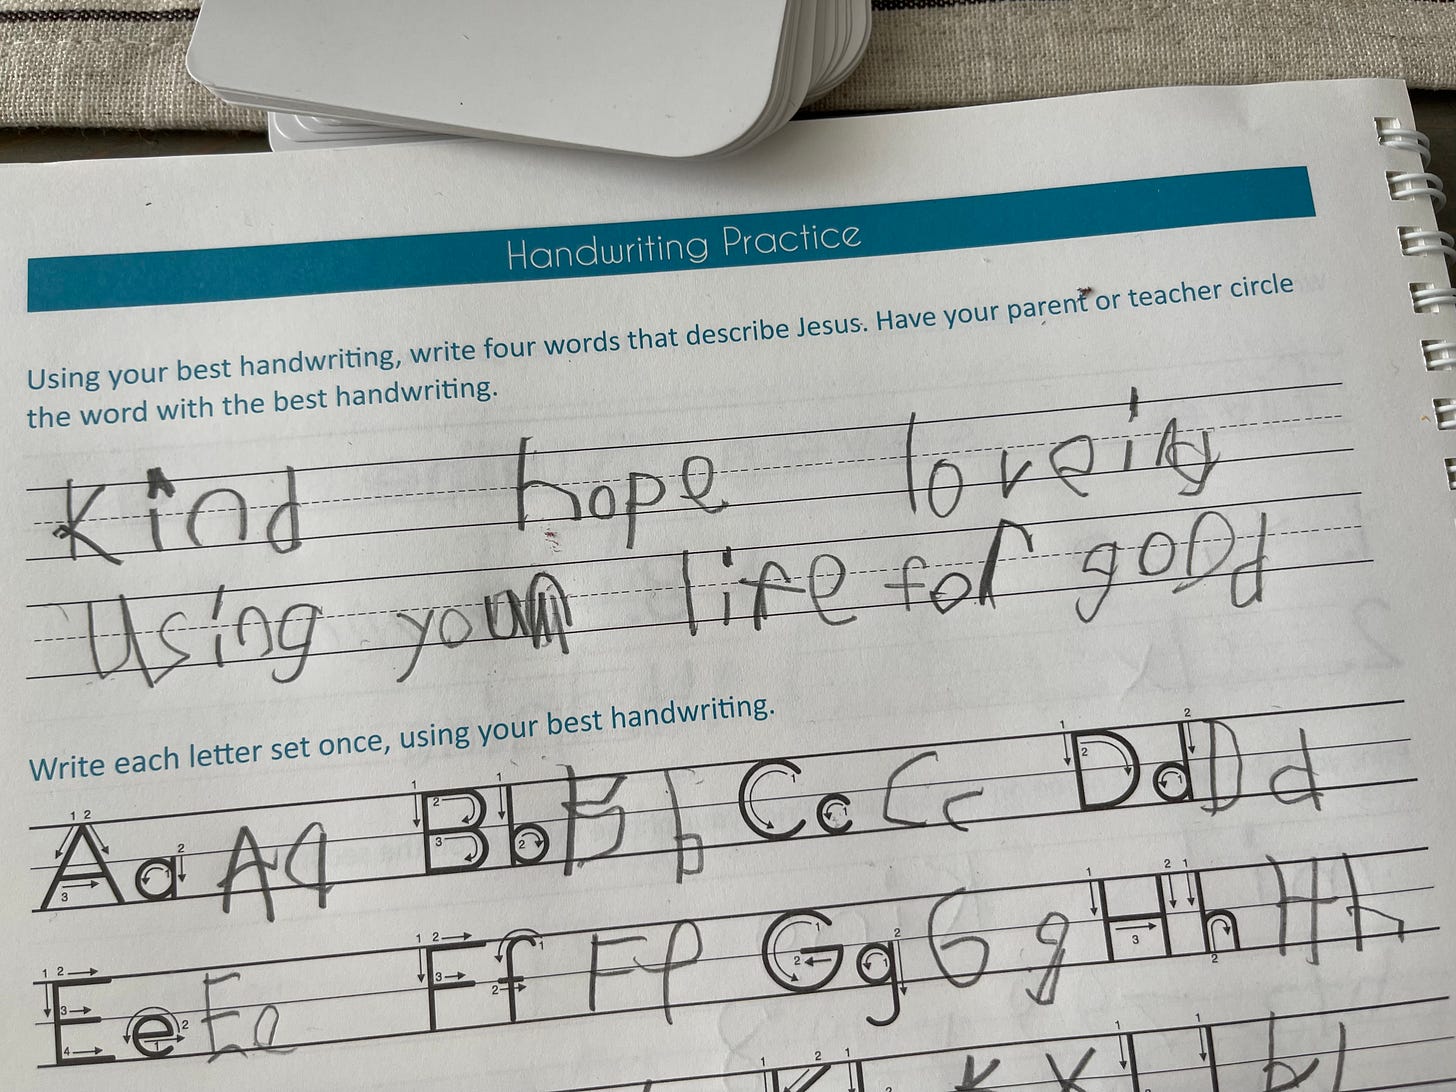 Handwriting Practice
Using your best handwriting, write four words that describe Jesus. Have your parent or teacher circle
the word with the best handwriting.
Kind hope loveing
Using your life for godd
Write each letter set once, using your best handwriting.
Aa Aa Bb Bb Cc Cc Dd Dd
Ee Ee Ff Ff Gg Gg Hh Hh